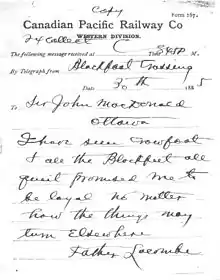 Copy
Form 167.
Canadian Pacific Railway Co
WESTERN DIVISION.
24 Collect
The following message received at
Time 545P M.
By Telegraph from Blackfoot Crossing
Date 30th 1885
To Sir John MacDonald
Ottawa
I have seen Crowfoot
& all the Blackfeet all
quiet promised me to
be loyal no matter
how the things may
turn Elsewhere
Father Lacombe